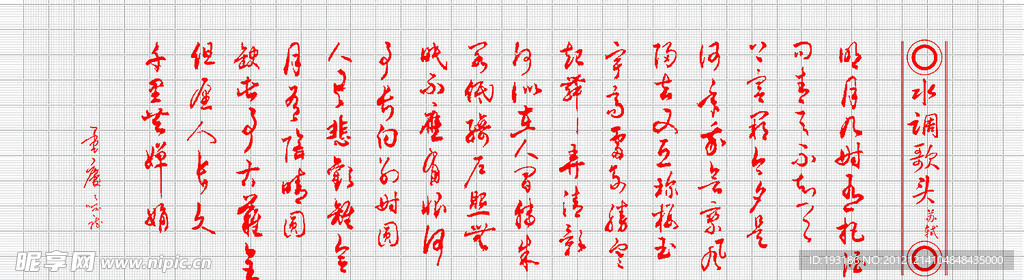 水调歌头
苏轼
明月几时有把酒
问青天不知天
上宫阙今夕是
何年我欲乘风
归去又恐琼楼玉
宇高处不胜寒
起舞弄清影
何似在人间转朱
阁低绮户照无
眠不应有恨何
事长向别时圆
人有悲欢离合
月有阴晴圆
缺此事古难全
但愿人长久
千里共婵娟
昵享网 www.nipic.cn
ID:193186 NO:20121214104848435000